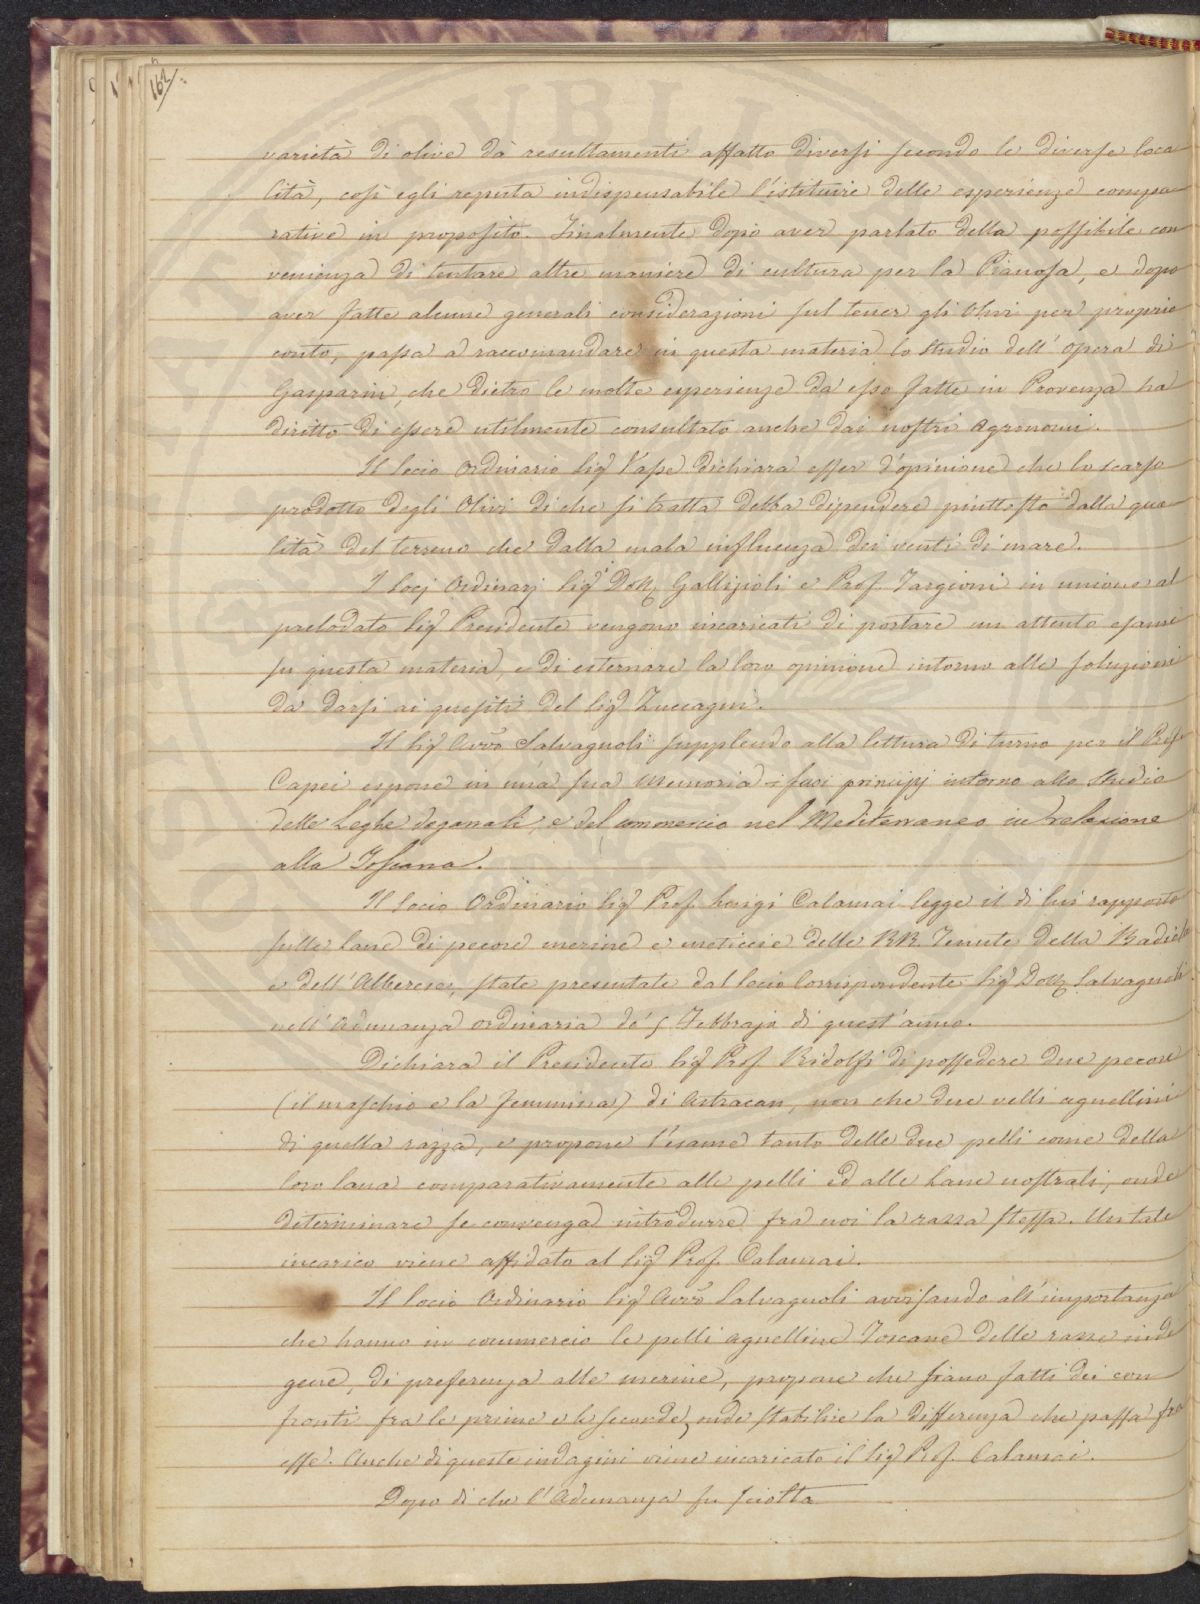 162
varietà di olive dà resultamenti affatto diversi secondo le diverse loca
lità, così egli reputa indispensabile l'istituire delle esperienze compa
rative in proposito. Finalmente dopo aver parlato della possibile con
venienza di tentare altre maniere di cultura per la Pianosa, e dopo
aver fatte alcune generali considerazioni sul tener gli Olivi per proprio
conto, passa a raccomandare in questa materia lo studio dell'opera di
Gasparin, che dietro le molte esperienze da esso fatte in Provenza ha
diritto di essere utilmente consultato anche dai nostri Agronomi.
Il Socio Ordinario Sig.r Vase dichiara esser d'opinione che lo scarso
prodotto degli Olivi di che si tratta debba dipendere piuttosto dalla qua
lità del terreno che dalla mala influenza dei venti di mare.
I Socj Ordinarj Sig.ri Dott. Gallizioli e Prof. Targioni in unione al
prelodato Sig.r Presidente vengono incaricati di portare un attento esame
su questa materia, e di esternare la loro opinione intorno alle soluzioni
da darsi ai quesiti del Sig.r Zuccagni.
Il Sig.r Avv.o Salvagnoli supplendo alla lettura di turno per il Prof.
Capei espone in una sua Memoria i suoi principj intorno allo studio
delle Leghe doganali, e del commercio nel Mediterraneo in relazione
alla Toscana.
Il Socio Ordinario Sig.r Prof. Luigi Calamai legge il di lui rapporto
sulle lane di pecore merine e meticcie delle RR. Tenute della Badiola
e dell'Alberese, state presentate dal Socio Corrispondente Sig.r Dott. Salvagnoli
nell'Adunanza ordinaria de' 5 Febbrajo di quest'anno.
Dichiara il Presidente Sig.r Prof. Ridolfi di possedere due pecore
(il maschio e la femmina) di Astracan, non che due velli agnellini
di quella razza, e propone l'esame tanto delle due pelli come della
loro lana comparativamente alle pelli ed alle lane nostrali, onde
determinare se convenga introdurre fra noi la razza stessa. Un tale
incarico viene affidato al Sig.r Prof. Calamai.
Il Socio Ordinario Sig.r Avv.o Salvagnoli avvisando all'importanza
che hanno in commercio le pelli agnelline Toscane delle razze indi
gene, di preferenza alle merine, propone che siano fatti dei con
fronti fra le prime e le seconde, onde stabilire la differenza che passa fra
esse. Anche di queste indagini viene incaricato il Sig.r Prof. Calamai.
Dopo di che l'Adunanza fu sciolta